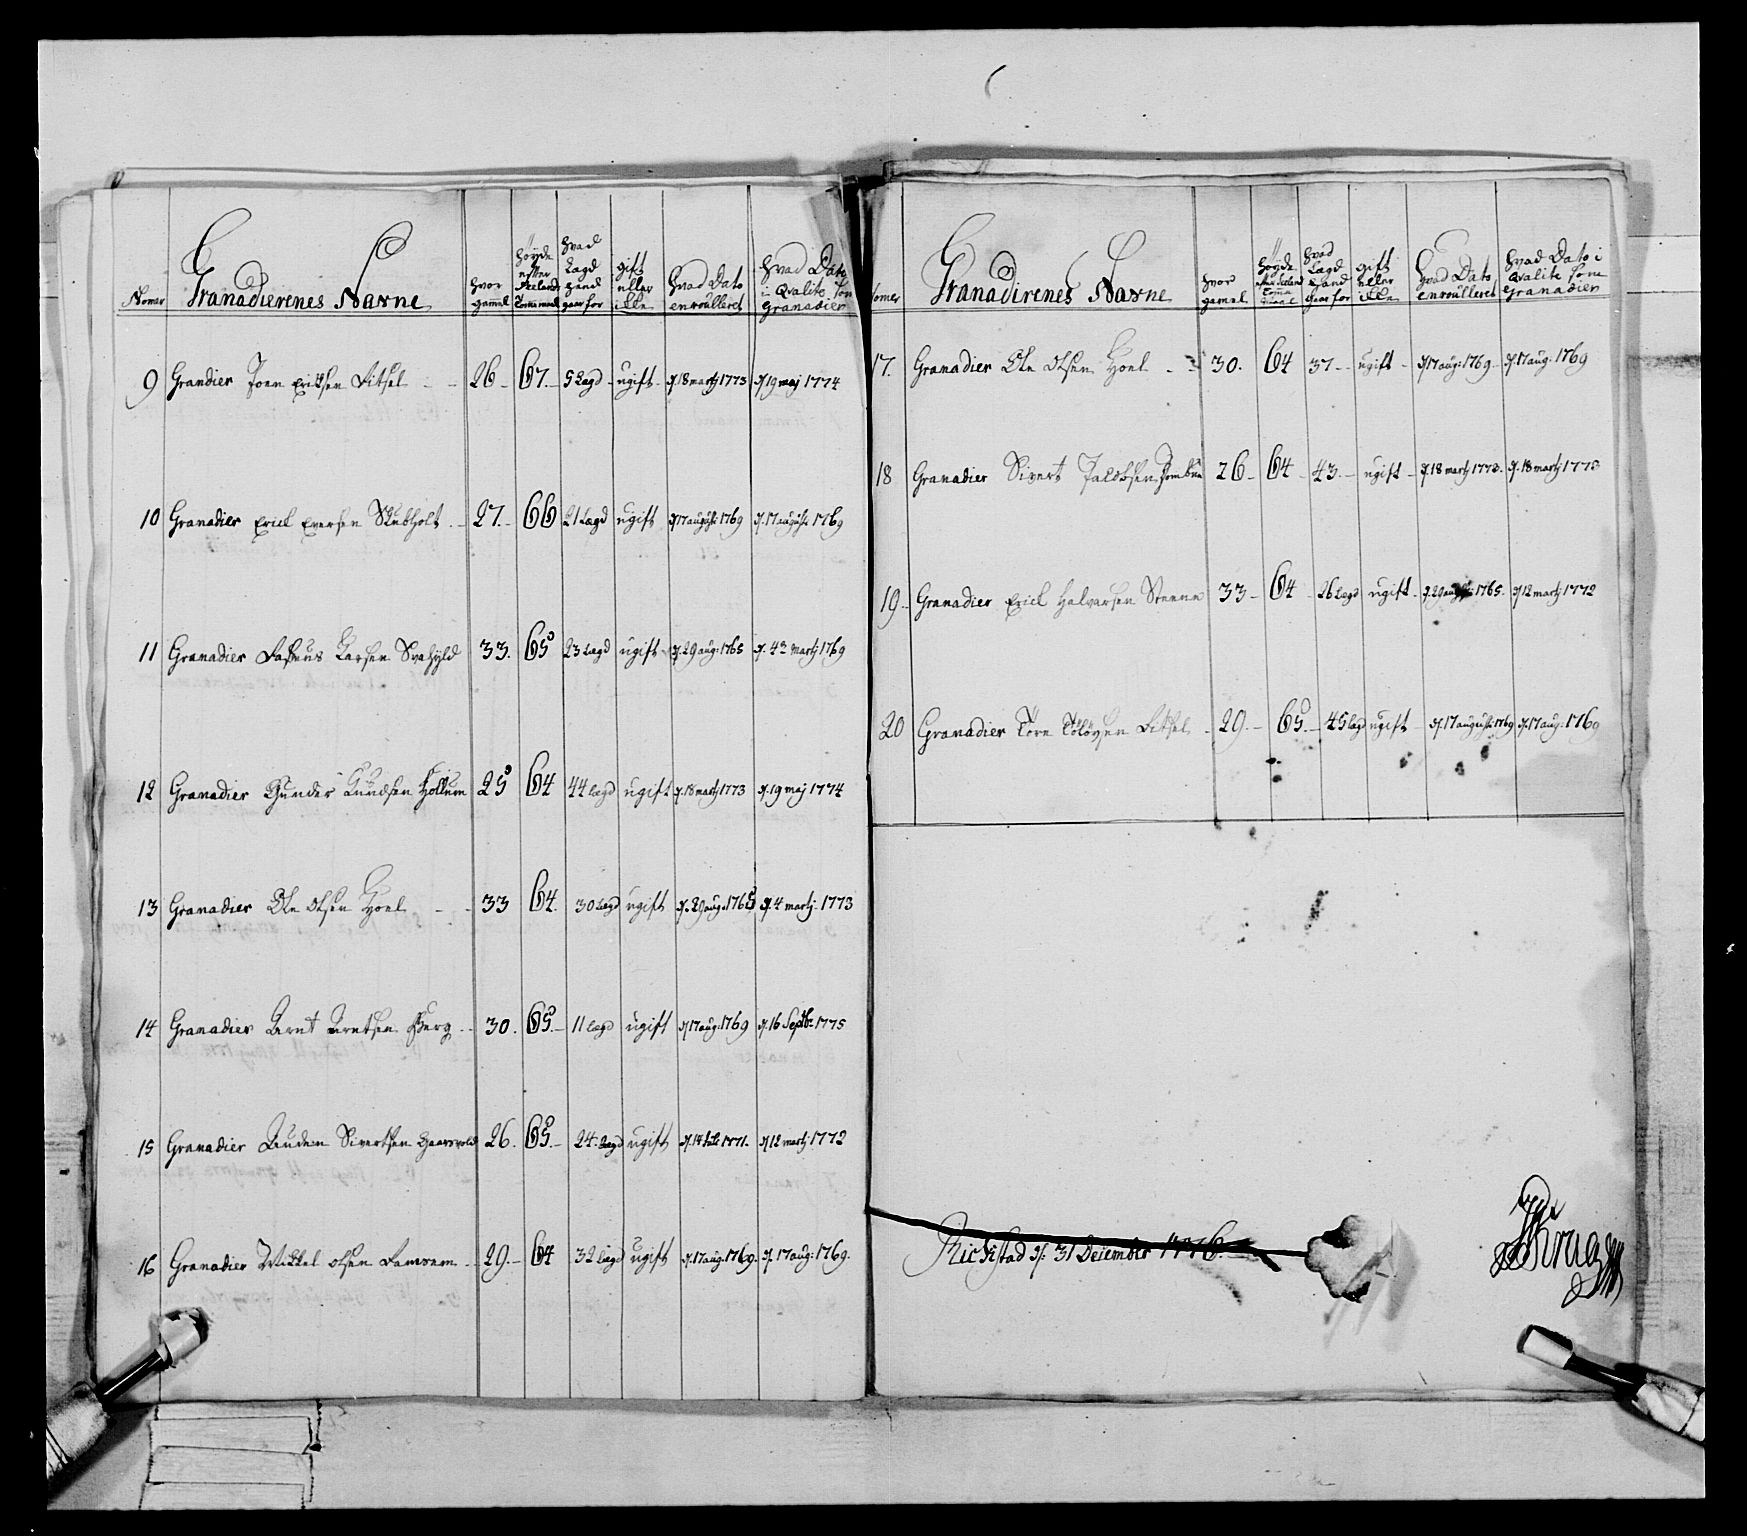 Nomer Granadierenes Navne hvor gamel høyde efter Seelands Comemaal hvad Lagd hand gaar for gift eller icke hvad Dato enroulleret hvad Dato i Qvalite som Granadier
9 Grandier Joen Ericksen Fitsel - - 26 - 67. - 5 Lagd - ugift - d. 18 martj 1773 d. 19 maj 1774
10 Granadier Erick Eversen Stubholt - 27. - 66 21 Lagd ugift d. 17 august: 1769 d. 17 august: 1769
11 Granadier Larsen 33. 65 23 Lagd ugift - d. 29 aug: 1765 d. 4de martj 1769
12 Granadier Gunder Knudsen 25 64 44 Lægd ugift d. 18 martj 1773 d. 19 maj 1774
13 Granadier Ole Olsen Hoel - - 33 64. 30 Lægd ugift d. 29 aug: 1765 d. 4 martj: 1773
14 Granadier Arnt Arntsen Berg - - 30. 65. - 11 Lægd ugift d. 17 aug: 1769 d. 16 Septbr: 1775
15 Granadier Auden Sivertsen 26. 65. - 24. Lægd ugift d. 14 1771. d. 12 martj 1772
16 Granadier Mikkel Olsen - 29. - 64 32 Lægd ugift d. 17 aug: 1769. d. 17 aug: 1769.
Nomer Granadirenes Navne hvor gamel høyde hvad Lagd hand gaar for gift eller icke hvad Dato enroulleret hvad Dato i Qvalite som Granadier
17. Granadier Ole Olsen Hoel - - 30. 64 37 - - ugift - d. 17 aug: 1769 - d. 17 aug: 1769
18 Granadier Sivert Jacobsen 26 - 64 - 43. - ugift - d. 18 martj 1773. d. 18 martj 1773
19 - Granadier Erick Halvorsen Steene 33 - 64 - 26 Lægd ugift - d. 29 1765. d. 12 martj 1772
20 Granadier Tore Fitsel - 29. - 65. - 45 Lagd ugift - d. 17 august: 1769 d. 17 aug: 1769
d. 31 December 1776.
Krug